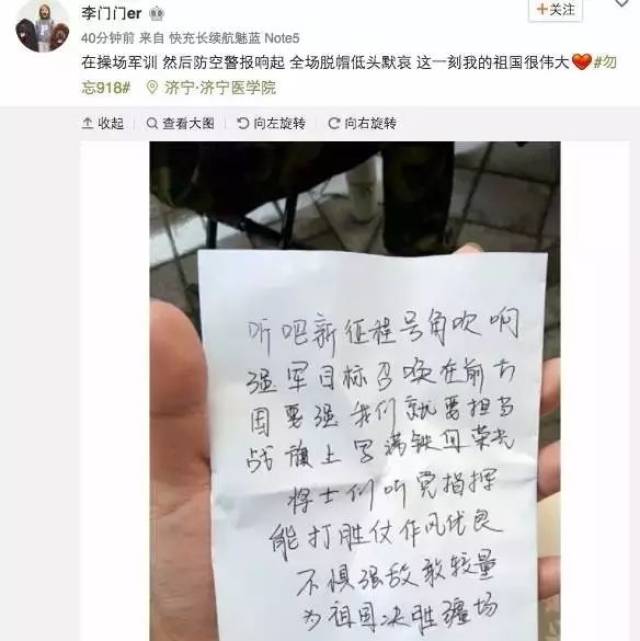 李门门er
+关注
40分钟前 来自 快充长续航魅蓝 Note5
在操场军训 然后防空警报响起 全场脱帽低头默哀 这一刻我的祖国很伟大❤️#勿
忘918# 济宁·济宁医学院
收起 查看大图 向左旋转 向右旋转
听吧新征程号角吹响
强军目标召唤在前方
国要强我们就要担当
战旗上写满铁血荣光
将士们听党指挥
能打胜仗作风优良
不惧强敌敢较量
为祖国决胜疆场